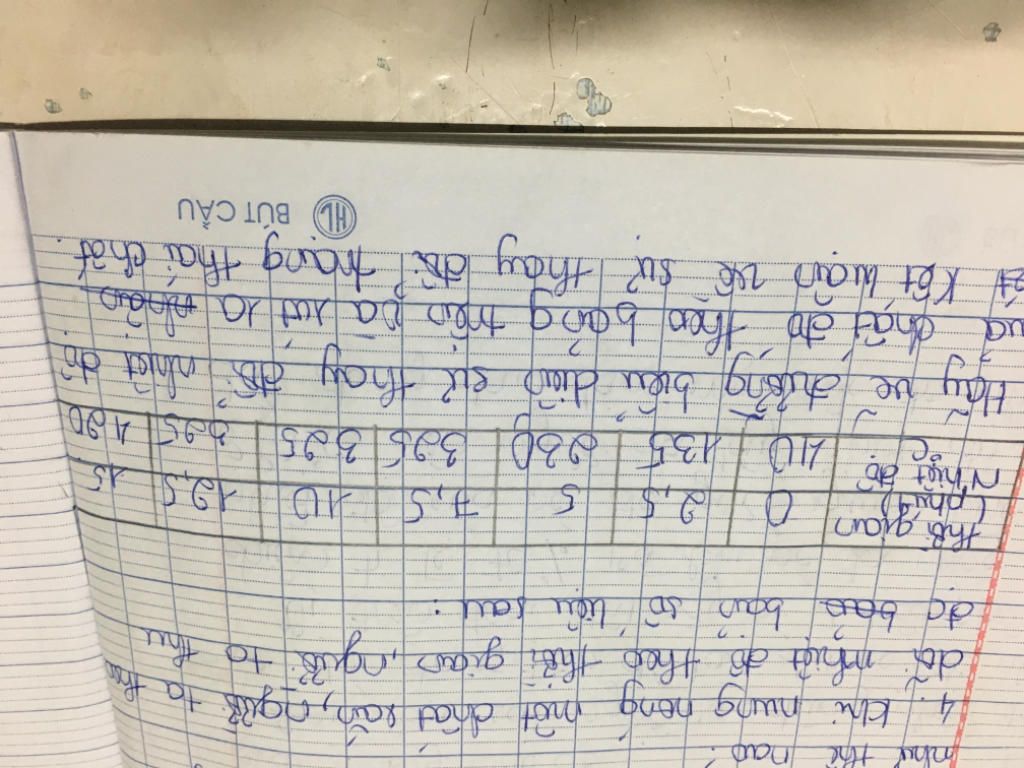 như thế nào.
4. Khi nung nóng một chất rắn, người ta thu
đổi nhiệt độ theo thời gian, người ta thu
đc bảo bản số liệu sau :
thời gian (phút) 0 2,5 5 7,5 10 12,5 15
Nhiệt độ °C 40 135 230 325 325 325 420
Hãy vẽ đường biểu diễn sự thay đổi nhiệt độ
của chất đó theo bảng trên và rút ra nhận
xét kết luận về sự thay đổi trạng thái chất.
HL BÚT CẦU